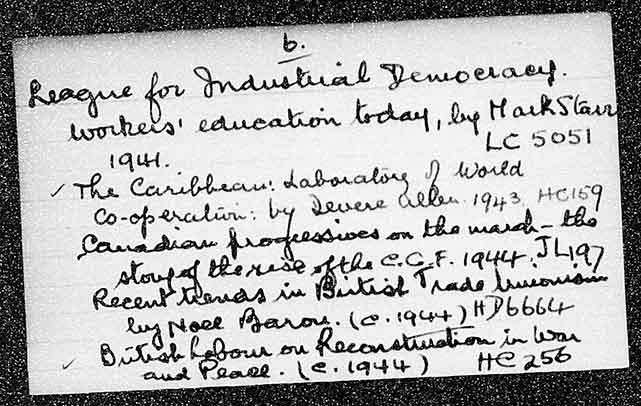 6.
League for Industrial Democracy.
Workers' education today, by Mark Starr
1941. LC 5051
✓ The Caribbean: Laboratory of World
Co-operation: by Devere Allen. 1943. HC159
Canadian progressives on the march – the
story of the rise of the C.C.F. 1944. JL197
Recent trends in British Trade Unionism
by Noel Barou. (c. 1944) HD6664
✓ British Labour on Reconstruction in War
and Peace. (c. 1944) HC 256